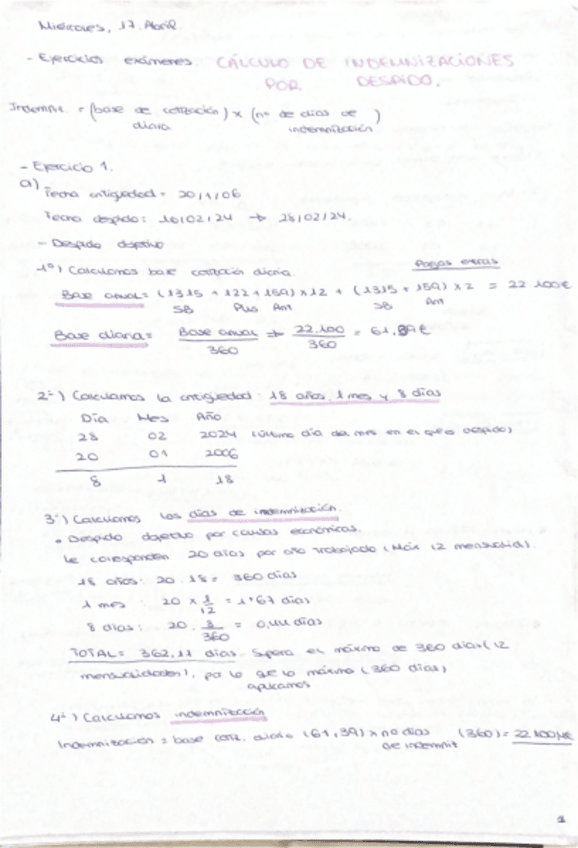 Miércoles, 17 Abril
- Ejercicios exámenes. CÁLCULO DE INDEMNIZACIONES
POR DESPIDO.
Indemniz. = (base de cotización) x (nº de días de )
diaria indemnización
- Ejercicio 1.
a) Fecha antigüedad = 20/1/06
Fecha despido: 10/02/24 → 28/02/24.
- Despido objetivo
1º) Calculamos base cotización diaria. Pagas extras
Base anual = (1315 + 122 + 159) x 12 + (1315 + 159) x 2 = 22.100€
SB Plus Ant SB Ant
Base diaria = Base anual → 22.100 = 61,39€
360 360
2º) Calculamos la antigüedad: 18 años, 1 mes y 8 días
Día Mes Año
28 02 2024 (último día del mes en el que es despido)
20 01 2006
8 1 18
3º) Calculamos los días de indemnización.
• Despido objetivo por causas económicas.
Le corresponden 20 días por año trabajado (Máx 12 mensualid).
18 años: 20 . 18 = 360 días
1 mes : 20 x 1/12 = 1'67 días
8 días : 20 . 8/360 = 0,44 días
TOTAL = 362,11 días Supera el máximo de 360 días (12
mensualidades), por lo que lo máximo (360 días)
aplicamos
4º) Calculamos indemnización
Indemnización = base cotiz. diaria (61,39) x nº días (360) = 22.100
de indemniz
1